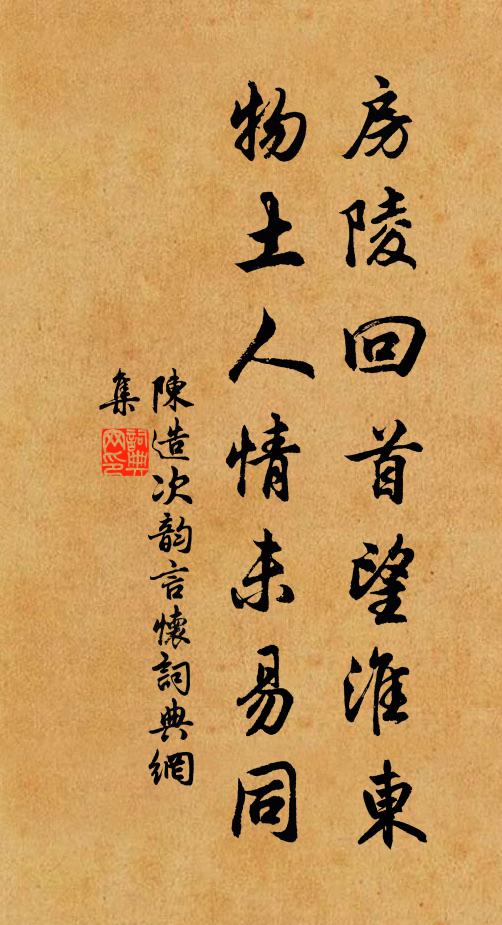 房陵回首望淮東
物土人情未易同
陳造次韵言懷詞典網
集
詞典
网印